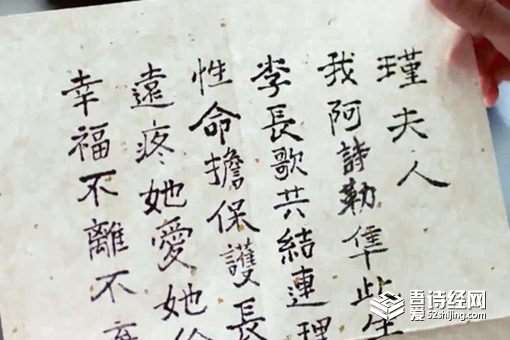 瑾夫人
我阿詩勒隼此生
李長歌共結連理
性命擔保護長
遠疼她愛她
幸福不離不
吾爱诗经网
52shijing.com